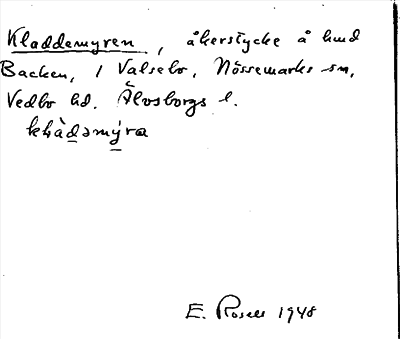 Kladdemyren, åkerstycke å hmd
Backen, 1 Valsebo, Nössemarks sn,
Vedbo hd. Älvsborgs l.
E. Rosell 1948